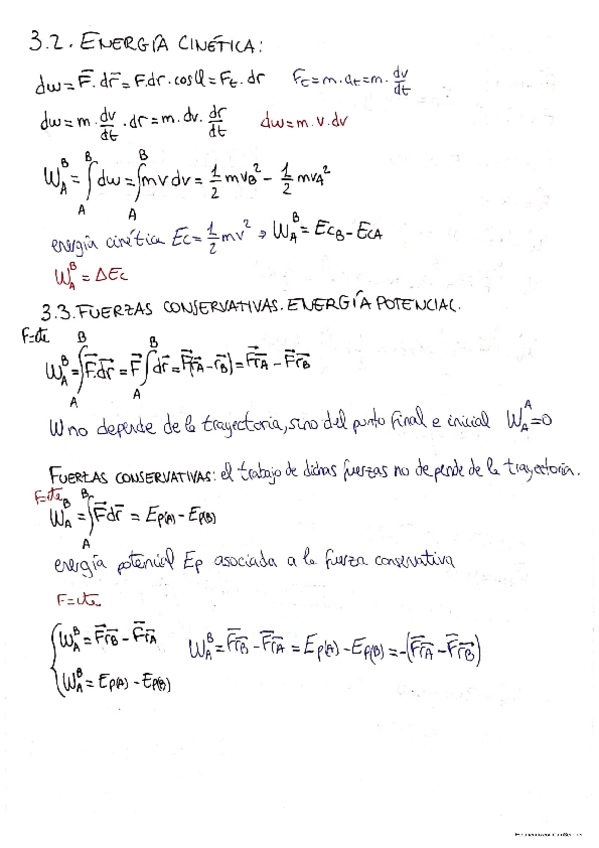 3.2. ENERGÍA CINÉTICA:
dw = F⃗·dr⃗ = F·dr·cosφ = Ft·dr   Ft = m·at = m·dv/dt
dw = m·dv/dt·dr = m·dv·dr/dt   dw = m·v·dv
W_A^B = ∫_A^B dw = ∫_A^B mv dv = 1/2 mv_B² - 1/2 mv_A²
energía cinética Ec = 1/2 mv² → W_A^B = Ec_B - Ec_A
W_A^B = ΔEc
3.3. FUERZAS CONSERVATIVAS. ENERGÍA POTENCIAL.
F=cte
W_A^B = ∫_A^B F⃗·dr⃗ = F⃗ ∫_A^B dr⃗ = F⃗(r⃗_A - r⃗_B) = F⃗r⃗_A - F⃗r⃗_B
W no depende de la trayectoria, sino del punto final e inicial W_A^A = 0
FUERZAS CONSERVATIVAS: el trabajo de dichas fuerzas no depende de la trayectoria.
F=cte
W_A^B = ∫_A^B F⃗dr⃗ = Ep(A) - Ep(B)
energía potencial Ep asociada a la fuerza conservativa
F=cte
W_A^B = F⃗r⃗_B - F⃗r⃗_A   W_A^B = F⃗r⃗_B - F⃗r⃗_A = Ep(A) - Ep(B) = -(F⃗r⃗_A - F⃗r⃗_B)
W_A^B = Ep(A) - Ep(B)